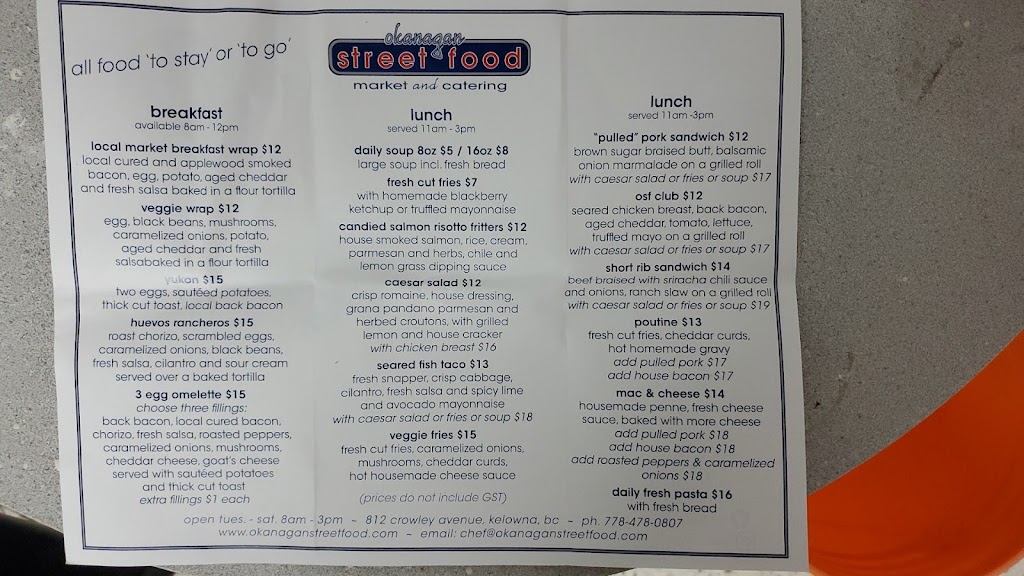 all food 'to stay' or 'to go'
okanagan
street food
market and catering
breakfast
available 8am - 12pm
local market breakfast wrap $12
local cured and applewood smoked
bacon, egg, potato, aged cheddar
and fresh salsa baked in a flour tortilla
veggie wrap $12
egg, black beans, mushrooms,
caramelized onions, potato,
aged cheddar and fresh
salsabaked in a flour tortilla
yukon $15
two eggs, sautéed potatoes,
thick cut toast, local back bacon
huevos rancheros $15
roast chorizo, scrambled eggs,
caramelized onions, black beans,
fresh salsa, cilantro and sour cream
served over a baked tortilla
3 egg omelette $15
choose three fillings:
back bacon, local cured bacon,
chorizo, fresh salsa, roasted peppers,
caramelized onions, mushrooms,
cheddar cheese, goat's cheese
served with sautéed potatoes
and thick cut toast
extra fillings $1 each
lunch
served 11am - 3pm
daily soup 8oz $5 / 16oz $8
large soup incl. fresh bread
fresh cut fries $7
with homemade blackberry
ketchup or truffled mayonnaise
candied salmon risotto fritters $12
house smoked salmon, rice, cream,
parmesan and herbs, chile and
lemon grass dipping sauce
caesar salad $12
crisp romaine, house dressing,
grana pandano parmesan and
herbed croutons, with grilled
lemon and house cracker
with chicken breast $16
seared fish taco $13
fresh snapper, crisp cabbage,
cilantro, fresh salsa and spicy lime
and avocado mayonnaise
with caesar salad or fries or soup $18
veggie fries $15
fresh cut fries, caramelized onions,
mushrooms, cheddar curds,
hot housemade cheese sauce
(prices do not include GST)
lunch
served 11am -3pm
"pulled" pork sandwich $12
brown sugar braised butt, balsamic
onion marmalade on a grilled roll
with caesar salad or fries or soup $17
osf club $12
seared chicken breast, back bacon,
aged cheddar, tomato, lettuce,
truffled mayo on a grilled roll
with caesar salad or fries or soup $17
short rib sandwich $14
beef braised with sriracha chili sauce
and onions, ranch slaw on a grilled roll
with caesar salad or fries or soup $19
poutine $13
fresh cut fries, cheddar curds,
hot homemade gravy
add pulled pork $17
add house bacon $17
mac & cheese $14
housemade penne, fresh cheese
sauce, baked with more cheese
add pulled pork $18
add house bacon $18
add roasted peppers & caramelized
onions $18
daily fresh pasta $16
with fresh bread
open tues. - sat. 8am - 3pm ~ 812 crowley avenue, kelowna, bc ~ ph. 778-478-0807
www.okanaganstreetfood.com ~ email: chef@okanaganstreetfood.com